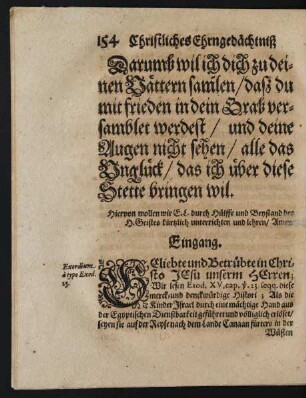 154 Christliches Ehrngedächtniß
Darumb wil ich dich zu dei-
nen Vättern samlen/ daß du
mit frieden in dein Grab ver-
samblet werdest / und deine
Augen nicht sehen/ alle das
Vnglück/ das ich über diese
Stette bringen wil.
Hiervon wollen wir E. L. durch Hülffe und Beystand des
H. Geistes kürtzlich unterrichten und lehren/ Amen.
Eingang.
Exordium.
à typo Exod.
15.
GEliebte und Betrübte in Chri-
sto JEsu unserm HErren;
Wir lesen Exod. XV. cap. ℣. 23. seqq. diese
merck- und denckwürdige Histori; Als die
Kinder Israel durch eine mächtige Hand aus
der Egyptischen Dienstbarkeit geführet und völliglich erlöset/
seyen sie auf der Reyse nach dem Lande Canaan fürters in der
Wüsten